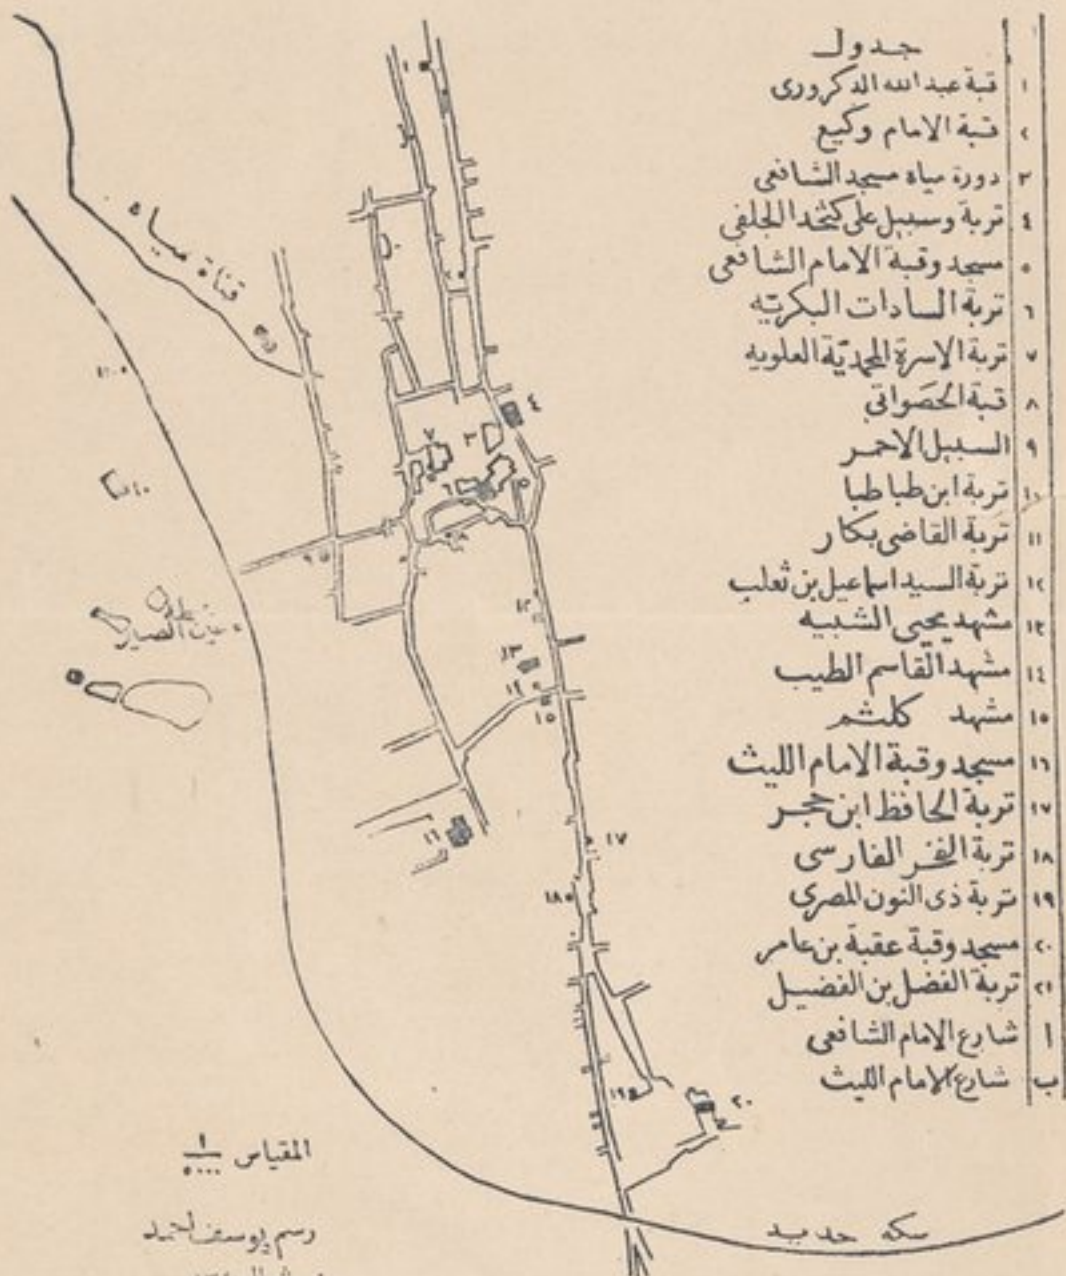 جدول
١ قبة عبد الله الدكرورى
٢ قبة الامام وكيع
٣ دورة مياه مسجد الشافعى
٤ تربة وسبيل على كتخدا الجلفى
٥ مسجد وقبة الامام الشافعى
٦ تربة السادات البكريّه
٧ تربة الاسرة المحمديّة العلويه
٨ قبة الحصواتى
٩ السبيل الاحمر
١٠ تربة ابن طباطبا
١١ تربة القاضى بكار
١٢ تربة السيد اسماعيل بن ثعلب
١٣ مشهد يحيى الشبيه
١٤ مشهد القاسم الطيب
١٥ مشهد كلثم
١٦ مسجد وقبة الامام الليث
١٧ تربة الحافظ ابن حجر
١٨ تربة الفخر الفارسى
١٩ تربة ذى النون المصرى
٢٠ مسجد وقبة عقبة بن عامر
٢١ تربة الفضل بن الفضيل
ا شارع الامام الشافعى
ب شارع الامام الليث
قناة مياه
١
٤
٣
٧
٦
٥
٨
٩
١٠
عين الصيره
١٢
١٣
١٤
١٥
١٦
١٧
١٨
١٩
٢٠
سكه حديد
المقياس ١/٥٠٠٠
رسم يوسف احمد